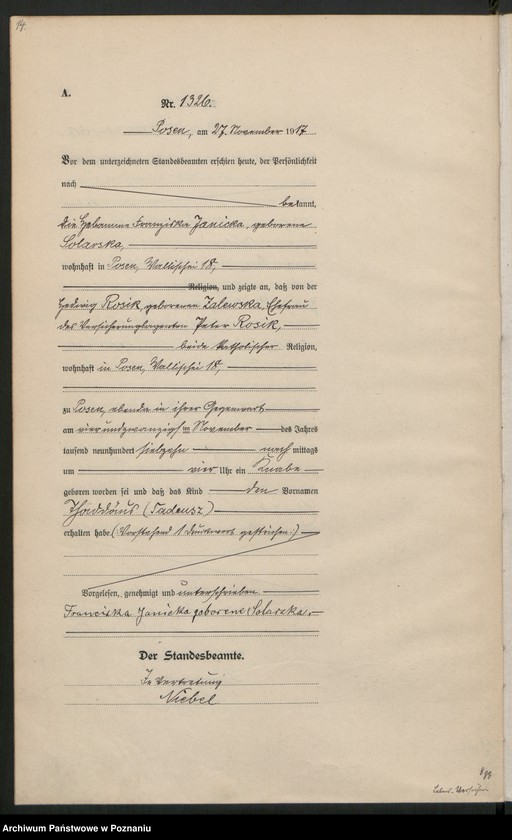 14.
A.
Nr. 1326.
Posen, am 27. November 1917
Vor dem unterzeichneten Standesbeamten erschien heute, der Persönlichkeit
nach
bekannt,
die Hebamme Franziska Janicka, geborene
Solarska,
wohnhaft in Posen, Wallischei 18,
Religion, und zeigte an, daß von der
Hedwig Rosik, geborenen Zalewska, Ehefrau
des Versicherungsagenten Peter Rosik,
beide katholischer Religion,
wohnhaft in Posen, Wallischei 18,
zu Posen, ebenda in ihrer Gegenwart
am vierundzwanzigsten November des Jahres
tausend neunhundert siebzehn nachmittags
um vier Uhr ein Knabe
geboren worden sei und daß das Kind den Vornamen
Thaddäus (Tadeusz)
erhalten habe. (Vorstehend 1 Druckwort gestrichen.)
Vorgelesen, genehmigt und unterschrieben
Franciska Janicka geborene Solarska.
Der Standesbeamte.
In Vertretung
Niebel
Archiwum Państwowe w Poznaniu